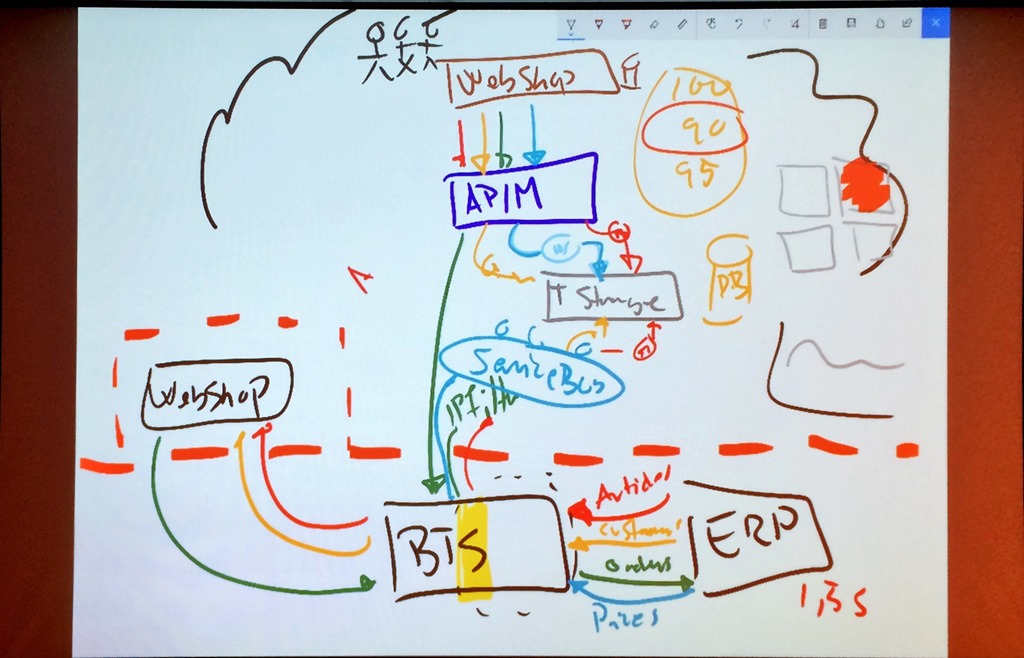 WebShop
100
90
95
APIM
T Storage
DB
ServiceBus
IPFilter
WebShop
Articles
BTS
Customer
ERP
Orders
Prices
1,5 s